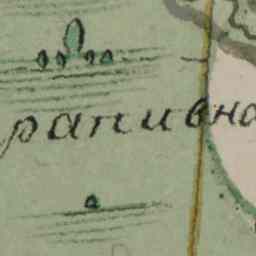 рапивна